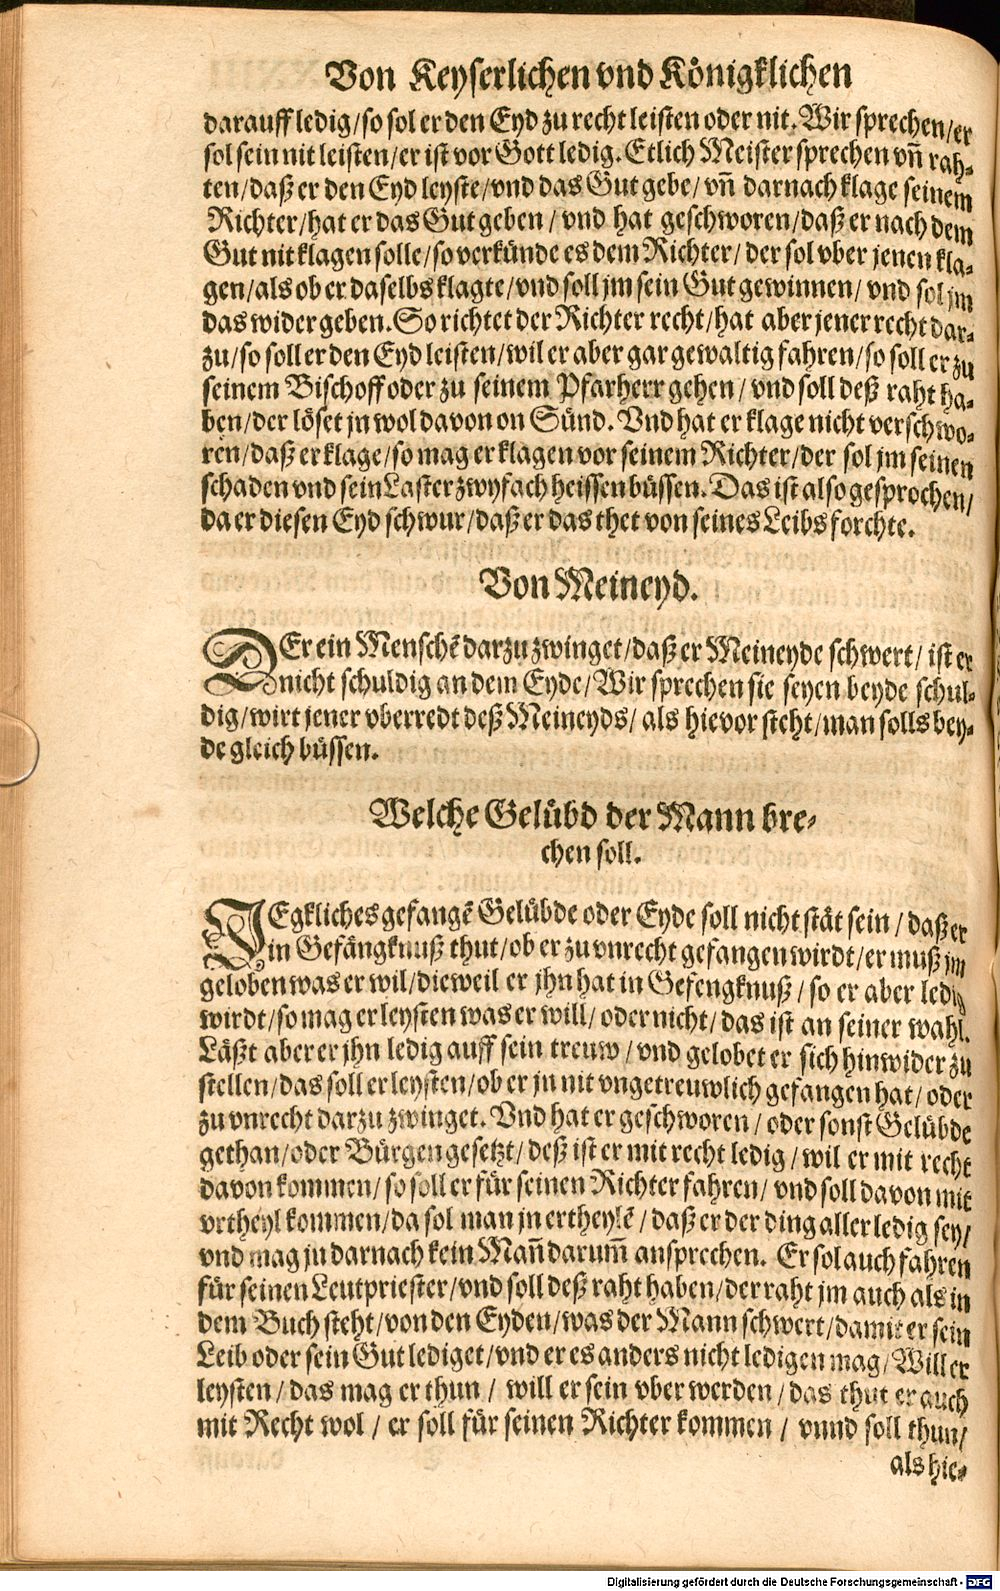 Von Keyserlichen vnd Königklichen
darauff ledig/so sol er den Eyd zu recht leisten oder nit. Wir sprechen/er
sol sein nit leisten/er ist vor Gott ledig. Etlich Meister sprechen vn̄ rah-
ten/daß er den Eyd leyste/vnd das Gut gebe/vn̄ darnach klage seinem
Richter/hat er das Gut geben/vnd hat geschworen/daß er nach dem
Gut nit klagen solle/so verkünde es dem Richter/der sol vber jenen kla-
gen/als ob er daselbs klagte/vnd soll jm sein Gut gewinnen/vnd sol jm
das wider geben. So richtet der Richter recht/hat aber jener recht dar-
zu/so soll er den Eyd leisten/wil er aber gar gewaltig fahren/so soll er zu
seinem Bischoff oder zu seinem Pfarherr gehen/vnd soll deß raht ha-
ben/der löset jn wol davon on Sünd. Vnd hat er klage nicht verschwo-
ren/daß er klage/so mag er klagen vor seinem Richter/der sol jm seinen
schaden vnd sein Laster zwyfach heissen büssen. Das ist also gesprochen/
da er diesen Eyd schwur/daß er das thet von seines Leibs forchte.
Von Meineyd.
DEr ein Menschē darzu zwinget/daß er Meineyde schwert/ist er
nicht schuldig an dem Eyde/Wir sprechen sie seyen beyde schul-
dig/wirt jener vberredt deß Meineyds/als hievor steht/man solls bey-
de gleich büssen.
Welche Gelübd der Mann bre-
chen soll.
IEgkliches gefangē Gelübde oder Eyde soll nicht stät sein/daß er
in Gefängknuß thut/ob er zu vnrecht gefangen wirdt/er muß jm
geloben was er wil/dieweil er jhn hat in Gefengknuß/so er aber ledig
wirdt/so mag er leysten was er will/oder nicht/das ist an seiner wahl.
Läßt aber er jhn ledig auff sein treuw/vnd gelobet er sich hinwider zu
stellen/das soll er leysten/ob er jn nit vngetreuwlich gefangen hat/oder
zu vnrecht darzu zwinget. Vnd hat er geschworen/oder sonst Gelübde
gethan/oder Bürgen gesetzt/deß ist er mit recht ledig/wil er mit recht
davon kommen/so soll er für seinen Richter fahren/vnd soll davon mit
vrtheyl kommen/da sol man jn ertheylē/daß er der ding aller ledig sey/
vnd mag jn darnach kein Man̄ darum̄ ansprechen. Er sol auch fahren
für seinen Leutpriester/vnd soll deß raht haben/der raht jm auch als in
dem Buch steht/von den Eyden/was der Mann schwert/damit er sein
Leib oder sein Gut lediget/vnd er es anders nicht ledigen mag/Will er
leysten/das mag er thun/will er sein vber werden/das thut er auch
mit Recht wol/er soll für seinen Richter kommen/vnnd soll thun/
als hie-
Digitalisierung gefördert durch die Deutsche Forschungsgemeinschaft - DFG